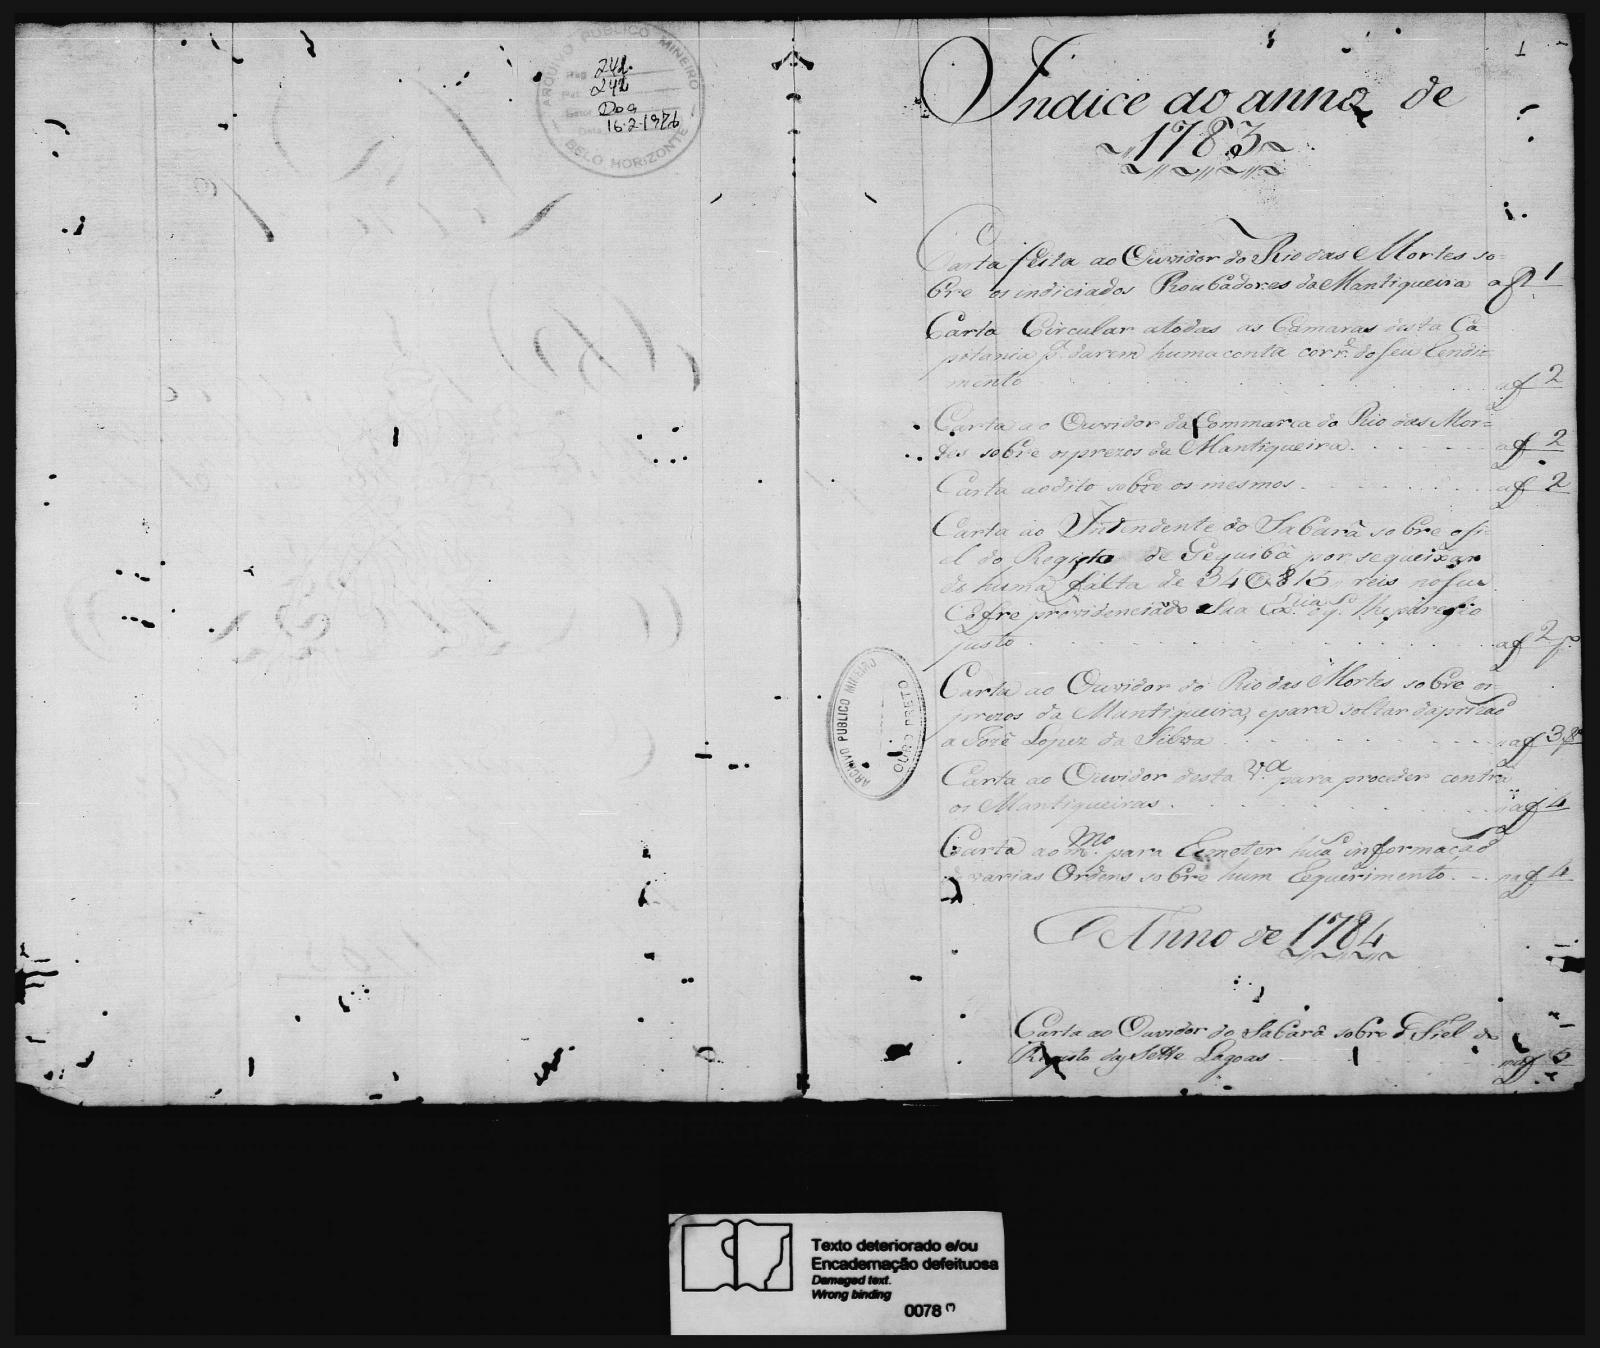 ARQUIVO PUBLICO MINEIRO
242
242
Doc
16-2-1976
BELO HORIZONTE
1
Indice do anno de
1783
Carta feita ao Ouvidor do Rio das Mortes so=
bre os indiciados Roubadores da Mantiqueira a f 1
Carta Circular a todas as Camaras desta Ca=
pitania p.ª darem huma conta corr.e do seu Rendi=
mento a f 2
Carta ao Ouvidor da Commarca do Rio das Mor=
tes sobre os prezos da Mantiqueira a f 2
Carta ao dito sobre os mesmos a f 2
Carta ao Intendente do Sabará sobre o fi=
el do Registo de Gequibá por se queixar
de huma falta de 340$815 reis no seu
Cofre providenciado Sua Ex.cia o q. lhe pareceo
justo a f 2
Carta ao Ouvidor do Rio das Mortes sobre os
prezos da Mantiqueira, e para soltar da prizão
a José Lopez da Silva a f 3
Carta ao Ouvidor desta V.ª para proceder contra
os Mantiqueiras a f 4
Carta ao m.mo para Remeter huã informação
e varias Ordens sobre hum Requerimento a f 4
Anno de 1784
Carta ao Ouvidor do Sabará sobre o Fiel do
Registo das Sette Lagoas a f
ARCHIVO PUBLICO MINEIRO
OURO PRETO
Texto deteriorado e/ou
Encadernação defeituosa
Damaged text.
Wrong binding
0078